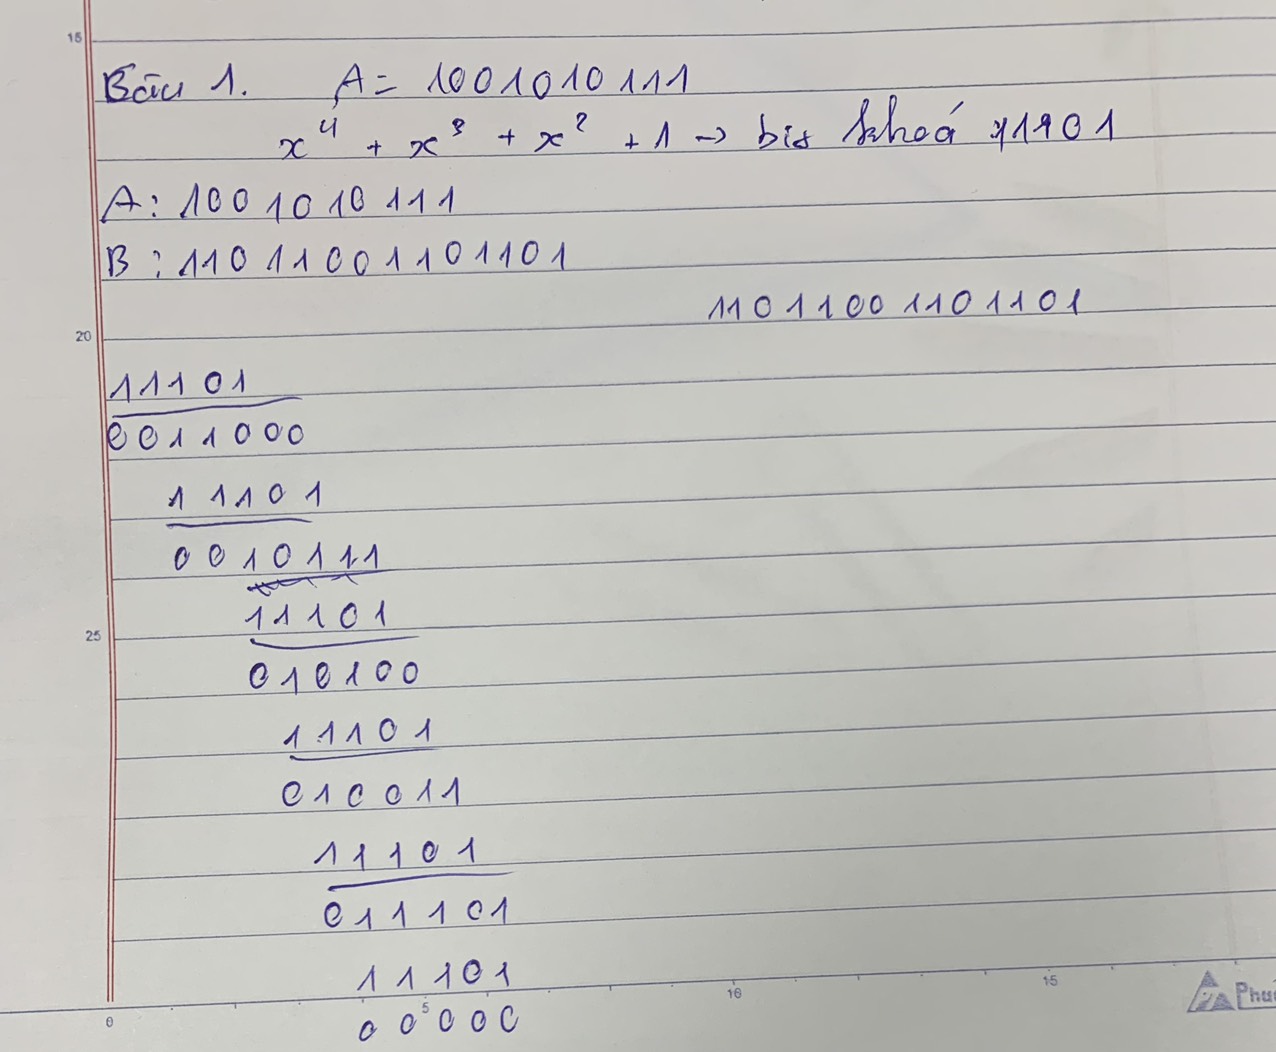 15
Bài 1. A = 1001010111
x⁴ + x³ + x² + 1 → bit khoá 11101
A: 1001010111
B: 11011001101101
11011001101101
20
11101
0011000
11101
0010111
11101
25
010100
11101
010011
11101
011101
11101
00000
0 5 10 15